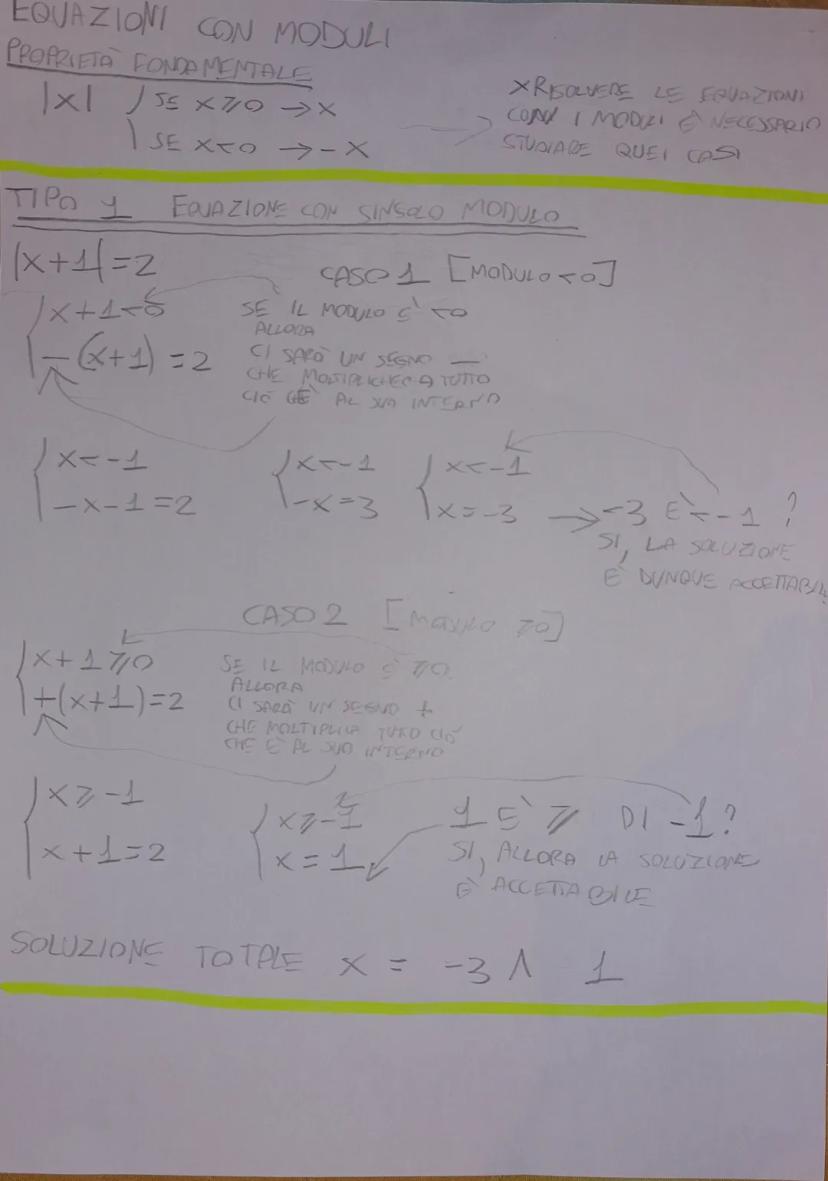 EQUAZIONI CON MODULI
PROPRIETÀ FONDAMENTALE
|x| { SE x ⩾ 0 → x
SE x < 0 → - x
x RISOLVERE LE EQUAZIONI
CON I MODULI È NECESSARIO
STUDIARE QUEI CASI
TIPO 1 EQUAZIONE CON SINGOLO MODULO
|x+1| = 2
CASO 1 [MODULO < 0]
{ x + 1 < 0
- (x+1) = 2
SE IL MODULO È < 0
ALLORA
CI SARÀ UN SEGNO —
CHE TUTTO
CIÒ AL SUO INTERNO
{ x < -1
-x - 1 = 2
{ x < -1
-x = 3
{ x < -1
x = -3 → -3 È < -1 ?
SI, LA SOLUZIONE
È DUNQUE
CASO 2 [MODULO ⩾ 0]
{ x + 1 ⩾ 0
+(x+1) = 2
SE IL MODULO È ⩾ 0
ALLORA
CI SARÀ UN SEGNO +
CHE MOLTIPLICA TUTTO CIÒ
CHE È AL SUO INTERNO
{ x ⩾ -1
x + 1 = 2
{ x ⩾ -1
x = 1
1 È ⩾ DI -1 ?
SI, ALLORA LA SOLUZIONE
È ACCETTABILE
SOLUZIONE TOTALE x = -3 ∧ 1